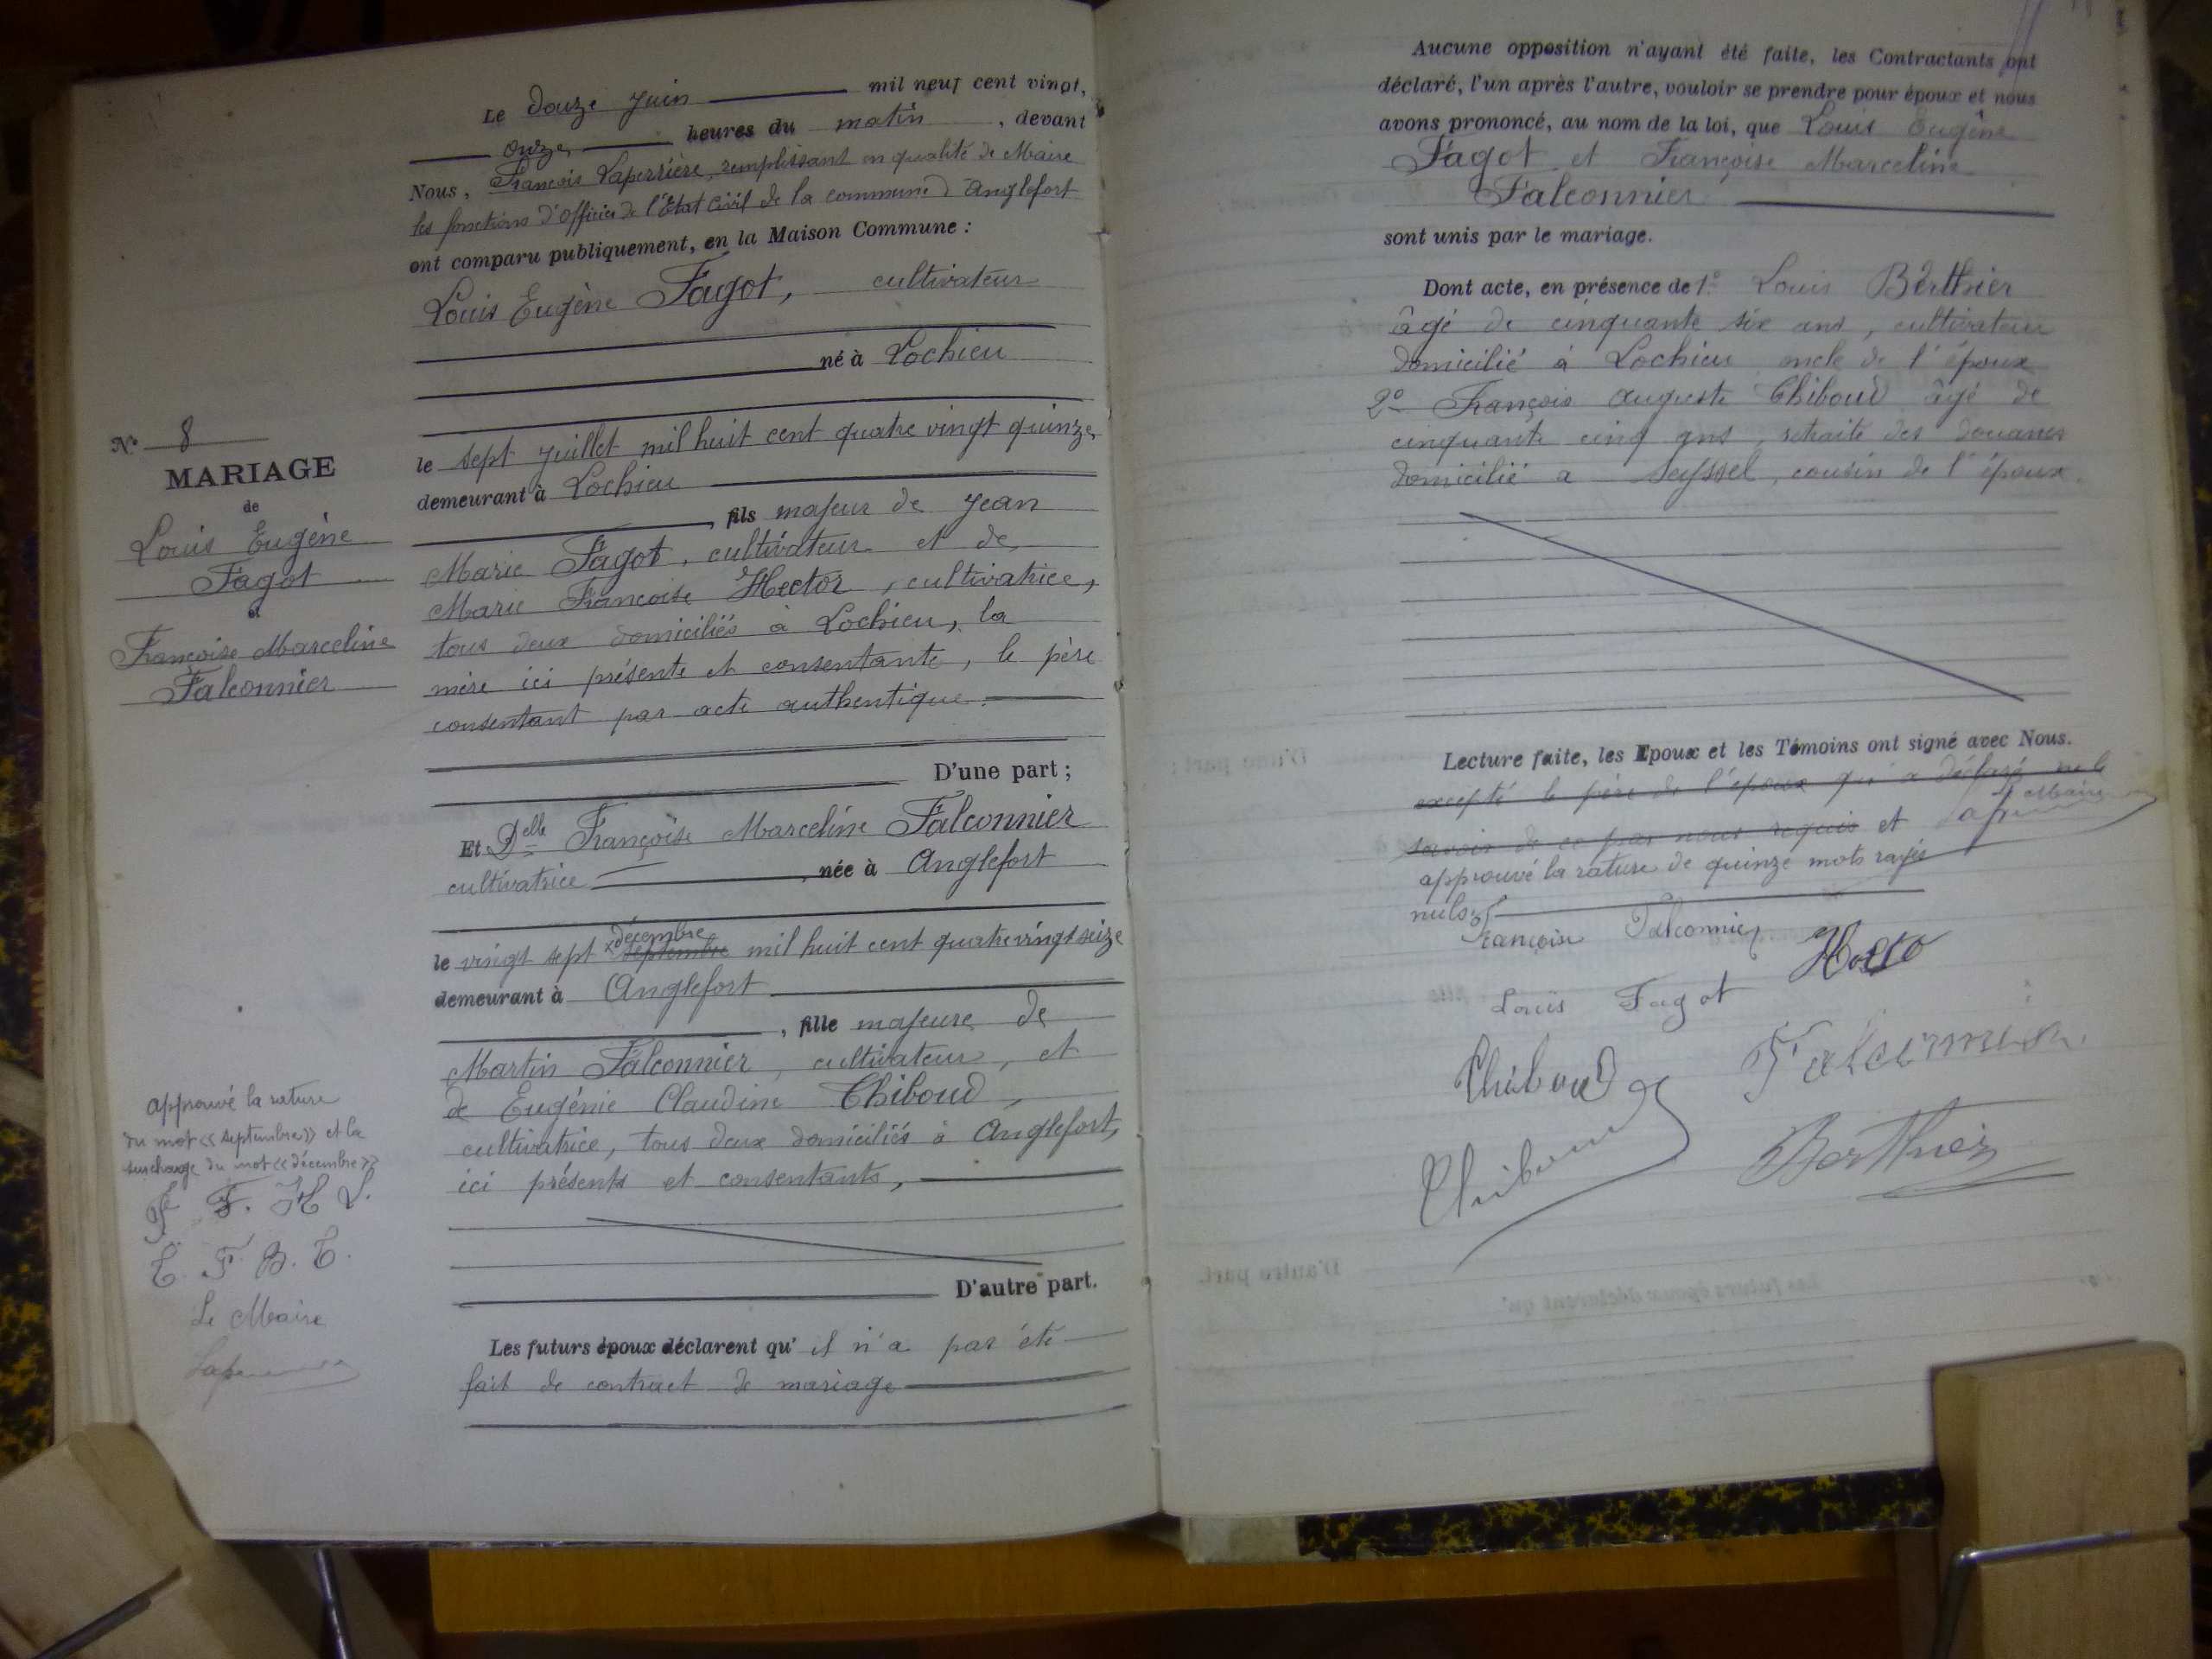 Le douze juin mil neuf cent vingt,
onze heures du matin, devant
Nous, François Laperrière, remplissant en qualité de Maire
les fonctions d'officier de l'Etat Civil de la commune d'Anglefort
ont comparu publiquement, en la Maison Commune :
Louis Eugène Fagot, cultivateur
né à Lochieu
le sept juillet mil huit cent quatre vingt quinze
demeurant à Lochieu
, fils majeur de Jean
Marie Fagot, cultivateur et de
Marie Françoise Hector, cultivatrice,
tous deux domiciliés à Lochieu, la
mère ici présente et consentante, le père
consentant par acte authentique.
D'une part ;
Et Delle Françoise Marceline Falconnier
cultivatrice, née à Anglefort
le vingt sept septembre x décembre mil huit cent quatre vingt seize
demeurant à Anglefort
, fille majeure de
Martin Falconnier, cultivateur, et
de Eugénie Claudine Chiboud,
cultivatrice, tous deux domiciliés à Anglefort,
ici présents et consentants,
D'autre part.
Les futurs époux déclarent qu'il n'a pas été
fait de contract de mariage
N° 8
MARIAGE
de
Louis Eugène
Fagot
et
Françoise Marceline
Falconnier
approuvé la rature
du mot « septembre » et la
surcharge du mot « décembre »
F. H L.
C. F B. C.
Le Maire
Aucune opposition n'ayant été faite, les Contractants ont
déclaré, l'un après l'autre, vouloir se prendre pour époux et nous
avons prononcé, au nom de la loi, que Louis Eugène
Fagot et Françoise Marceline
Falconnier
sont unis par le mariage.
Dont acte, en présence de 1° Louis Berthier
âgé de cinquante six ans, cultivateur
domicilié à Lochieu oncle de l'époux
2° François Auguste Chiboud âgé de
cinquante cinq ans, retraité des douanes
domicilié a Seyssel, cousin de l'époux.
Lecture faite, les Epoux et les Témoins ont signé avec Nous.
excepté le père de l'époux qui a déclaré ne le
savoir de ce par nous requis et
approuvé la rature de quinze mots rayés
nuls.
le Maire
Françoise Falconnier
Louis Fagot
Chiboud Falconnier
Chiboud Berthier